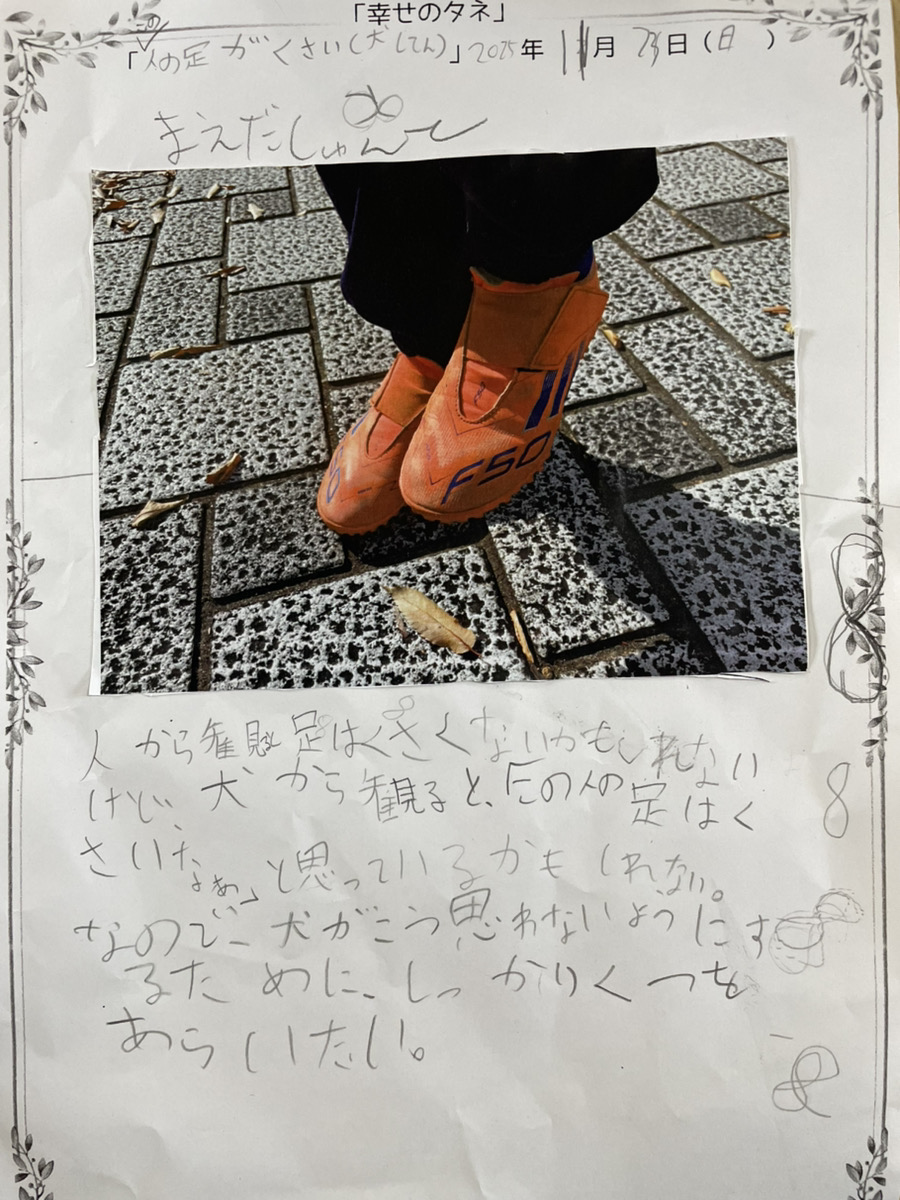 「幸せのタネ」
「この人の足がくさい(犬してん)」2025年11月23日(日)
まえだしゅんて
F50
人から観ると足はくさくないかもしれない
けど、犬から観ると、「この人の足はく
さいなぁ。」と思っているかもしれない。
なので、犬がこう思わないようにす
るために、しっかりくつを
あらいたい。
8